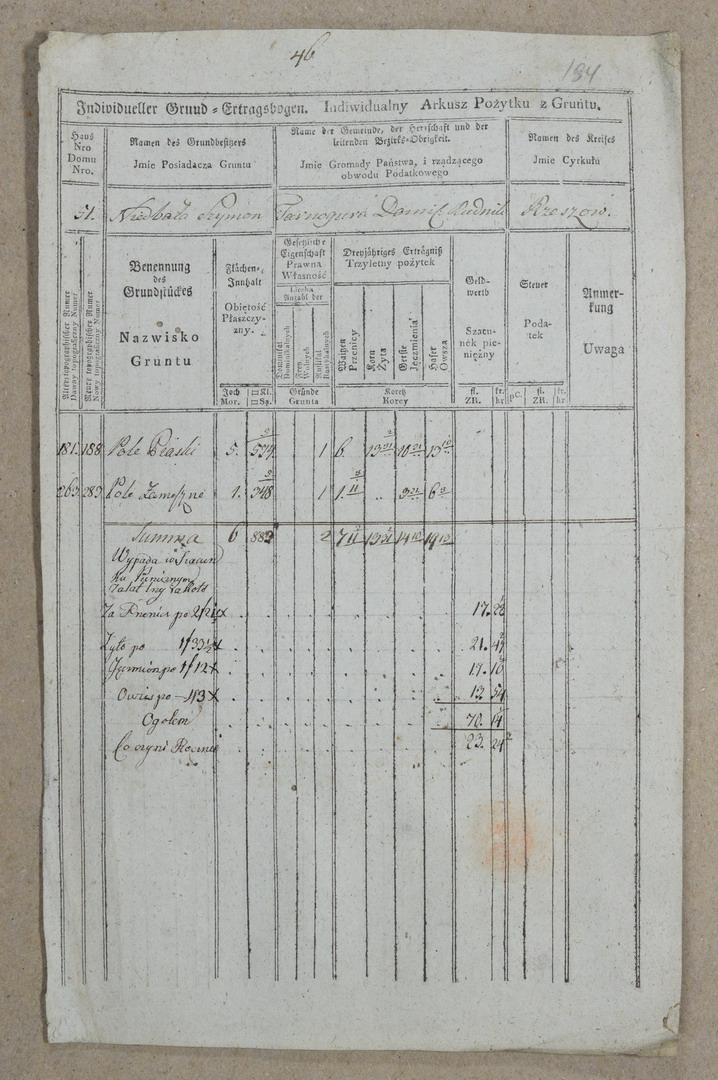 46
194
Individueller Grund = Ertragsbogen. Indiwidualny Arkusz Pożytku z Gruntu.
Haus Nro Domu Nro.
Namen des Grundbesitzers
Jmie Posiadacza Gruntu
Name der Gemeinde, der Herrschaft und der leitenden Bezirks-Obrigkeit.
Jmie Gromady Państwa, i rządzącego obwodu Podatkowego
Namen des Kreises
Jmie Cyrkułu
51. Niedbała Szymon Tarnogura Rudnik Rzeszow.
Alter topographischer Numer
Dawny topograficzny Numer
Neuer topographischer Numer
Nowy topograficzny Numer
Benennung des Grundstückes
Nazwisko Gruntu
Flächen-Innhalt
Obiętość Płaszczyzny.
Joch Mor.
□ Kl. □ Sp.
Gesetzliche Eigenschaft
Prawna Własność
Anzahl der
Liczba
Dominikal
Dominikalnych
Frey
Wolnych
Rustikal
Rustykalnych
Gründe
Grunta
Dreyjähriges Erträgniß
Trzyletny pożytek
Waitzen
Pszenicy
Korn
Żyta
Gerste
Jęczmienia
Hafer
Owsa
Koretz
Korcy
Geldwerth
Szacunek pieniężny
fl. ZR. kr. kr
Steuer
Podatek
pC. fl. ZR. kr. kr
Anmerkung
Uwaga
181. 188 Pole Piaski 5. 534 1 6
263. 283 Pole 1. 348 1 1
Summa 6 882 2
Wypada
Za po 17.
Zyto po 1/33½ x 21.
po 1/12 x 17.
Owies po -43 x 13. 54
Ogołem 70. 14
Co czyni Rocznie 23. 24